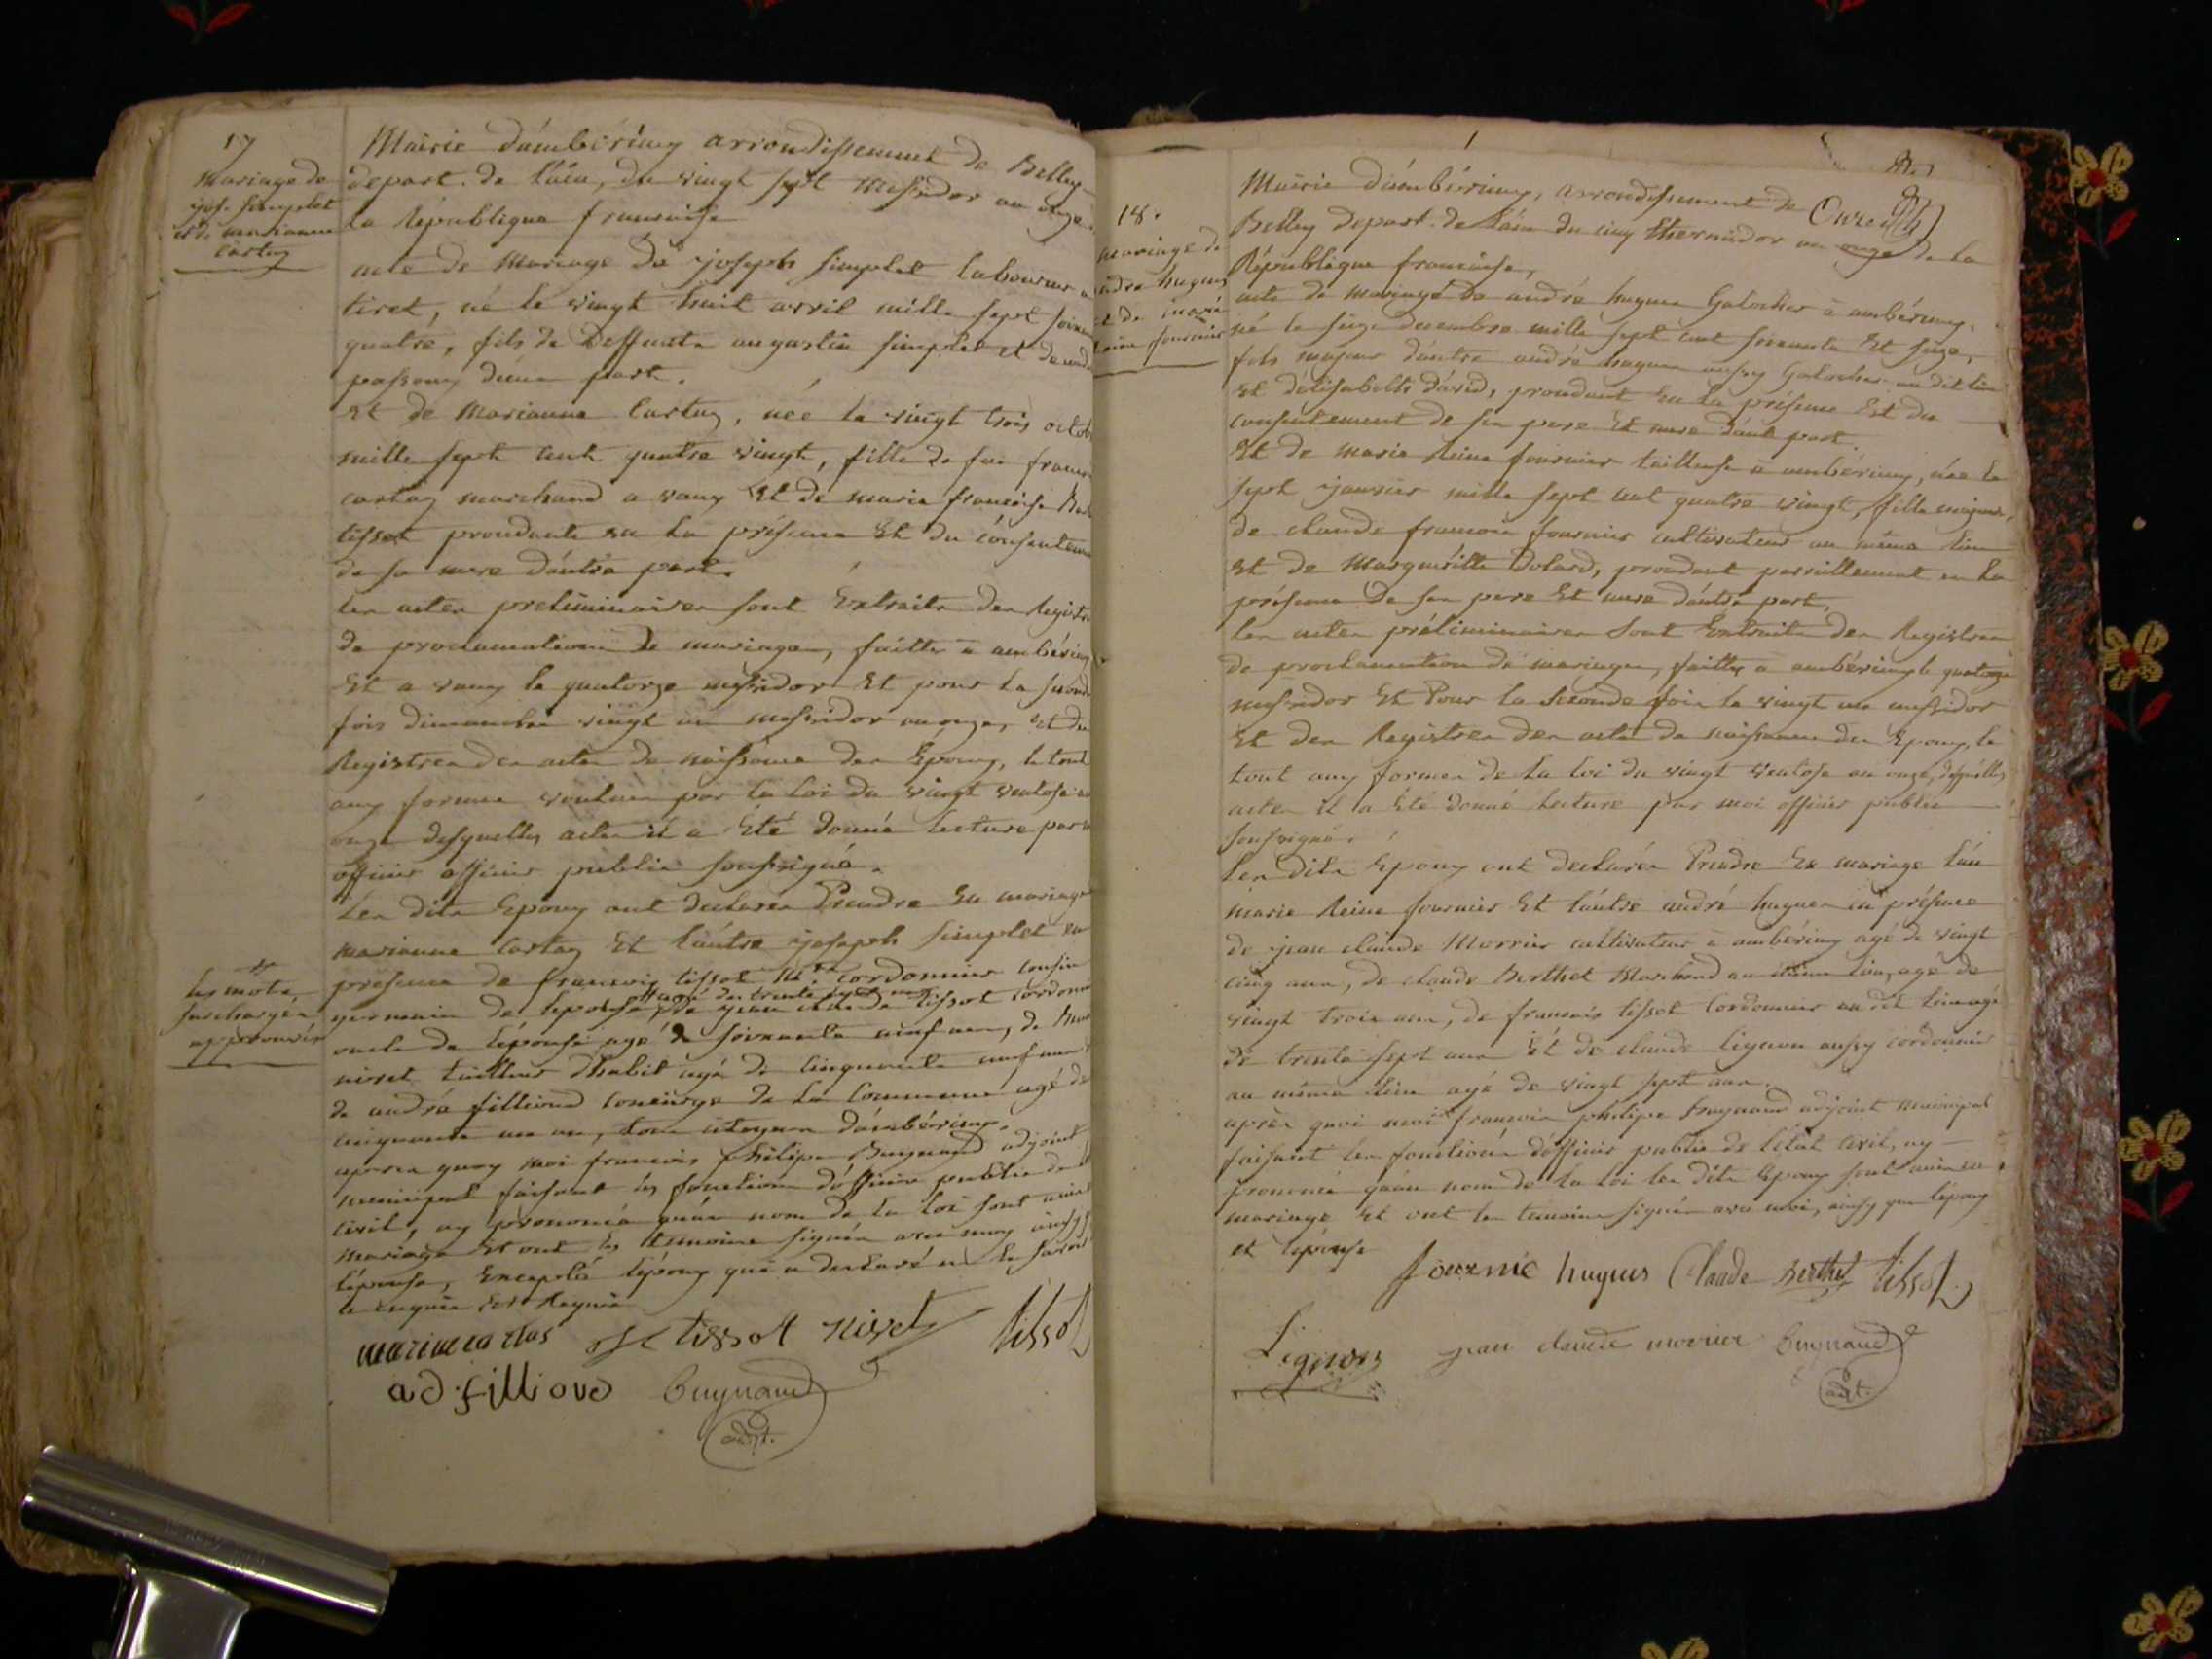 17
Mariage de
jos. simplet
et de marianne
Cartaz
Mairie d'ambérieuy arrondissement de Belley
depart. de l'ain, du vingt sept Messidor an onze
la République francoise
acte de Mariage de joseph simplet laboureur a
tiret, né le vingt huit avril mille sept soixan
quatre, fils de Deffunte augustin simplet et de
passouz d'une part.
Et de Marianne Cartaz, née le vingt trois octob
mille sept cent quatre vingt, fille de feu francois
cartaz marchand a vaux et de marie francoise
tissot proudante en la présence Et du consenteme
de sa mere d'autre part.
les actes preliminaires sont Extraits des Registre
de proclamations de mariages, faittes a ambérieuy
Et a vaux le quatorze messidor Et pour la seconde
fois dimanche vingt un messidor an onze, et des
Registres des actes de naissance des Epoux, le tout
aux formes voulues par la loi du vingt ventose an
onze desquelles actes il a été donné lecture par
officier officier public soussigné.
Les dits Epoux ont declarés Prendre En mariage
marianne Cartaz Et l'autre joseph simplet en
presence de francois tissot Cordonnier cousin
germain de l'epouse, agé de trente sept ans de jean claude tissot Cordonn
oncle de l'épouse agé de soixante neuf ans, de
nivet tailleur d'habit agé de cinquante neuf ans
de andré filliond concierge de la Commune agé de
cinquante un an, tous citoyens d'ambérieuy.
apres quoy moi francois philipe Buynand adjoint
municipal faisant les fonctions d'officier public de
civil, ay prononcé qu'au nom de la loi sont unis
mariage Et ont les temoins signés avec moy ainsy
l'épouse, Excepté l'époux qui a declaré ne le savoir
de enquis Et Requis
les mots
surchargés
approuvés
marianne cartas tissot nivet tissot
ad filliovd Buynand
adjt.
18.
mariage de
andré hugues
et de marie
reine fournier
Mairie d'ambérieuy, arrondissement de
Belley depart. de l'ain du cinq thermidor an onze de la
République francoise,
acte de mariage de andré hugues Galocher a ambérieuy,
né le seize decembre mille sept cent soixante Et seize,
fils majeur d'autre andré hugues aussy Galocher au dit lieu
et d'elisabeth david, proudant En la présence Et du
consentement de ses pere Et mere d'une part.
Et de marie Reine fournier tailleuse a ambérieuy, née le
sept janvier mille sept cent quatre vingt, fille majeure,
de claude francois fournier cultivateur au même lieu
et de Marguéritte Dolard, proudant pareillement en la
présence De ses pere Et mere d'autre part,
les actes préliminaires sont Extraits des Registres
de proclamation de mariages, faittes a ambérieuy le quatorze
messidor Et Pour la Seconde fois le vingt un messidor
Et des Registres des acte de naissances des Epoux, le
tout aux formes de la loi du vingt ventose an onze, desquelles
actes il a été donné lecture par moi officier public
soussigné.
Les dits Epoux ont declarés Prendre En mariage l'un
marie Reine fournier Et l'autre andré hugues en présence
de jean claude Morrier cultivateur a ambérieuy agé de vingt
cinq ans, de claude Berthet Marchand au même lieu, agé de
vingt trois ans, de francois tissot Cordonnier au dit lieu agé
de trente sept ans Et de claude lignon aussy cordonnier
au même lieu agé de vingt sept ans.
après quoi moi francois philipe buynand adjoint municipal
faisant les fonctions d'officier public de l'état civil, ay
prononcé qu'au nom de la loi les dits Epoux sont unis en
mariage Et ont les temoins signés avec moi, ainsy que l'époux
et l'épouse
fournié hugues Claude Berthet tissot
Lignon jean claude morrier Buynand
adjt.